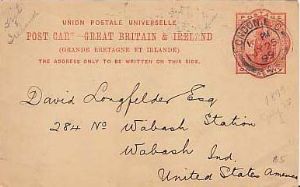 UNION POSTALE UNIVERSELLE
POST CARD — GREAT BRITAIN & IRELAND
(GRANDE BRETAGNE ET IRLANDE)
THE ADDRESS ONLY TO BE WRITTEN ON THIS SIDE.
LONDON
David Longfelder Esq
284 No Wabash Station
Wabash Ind,
United States America